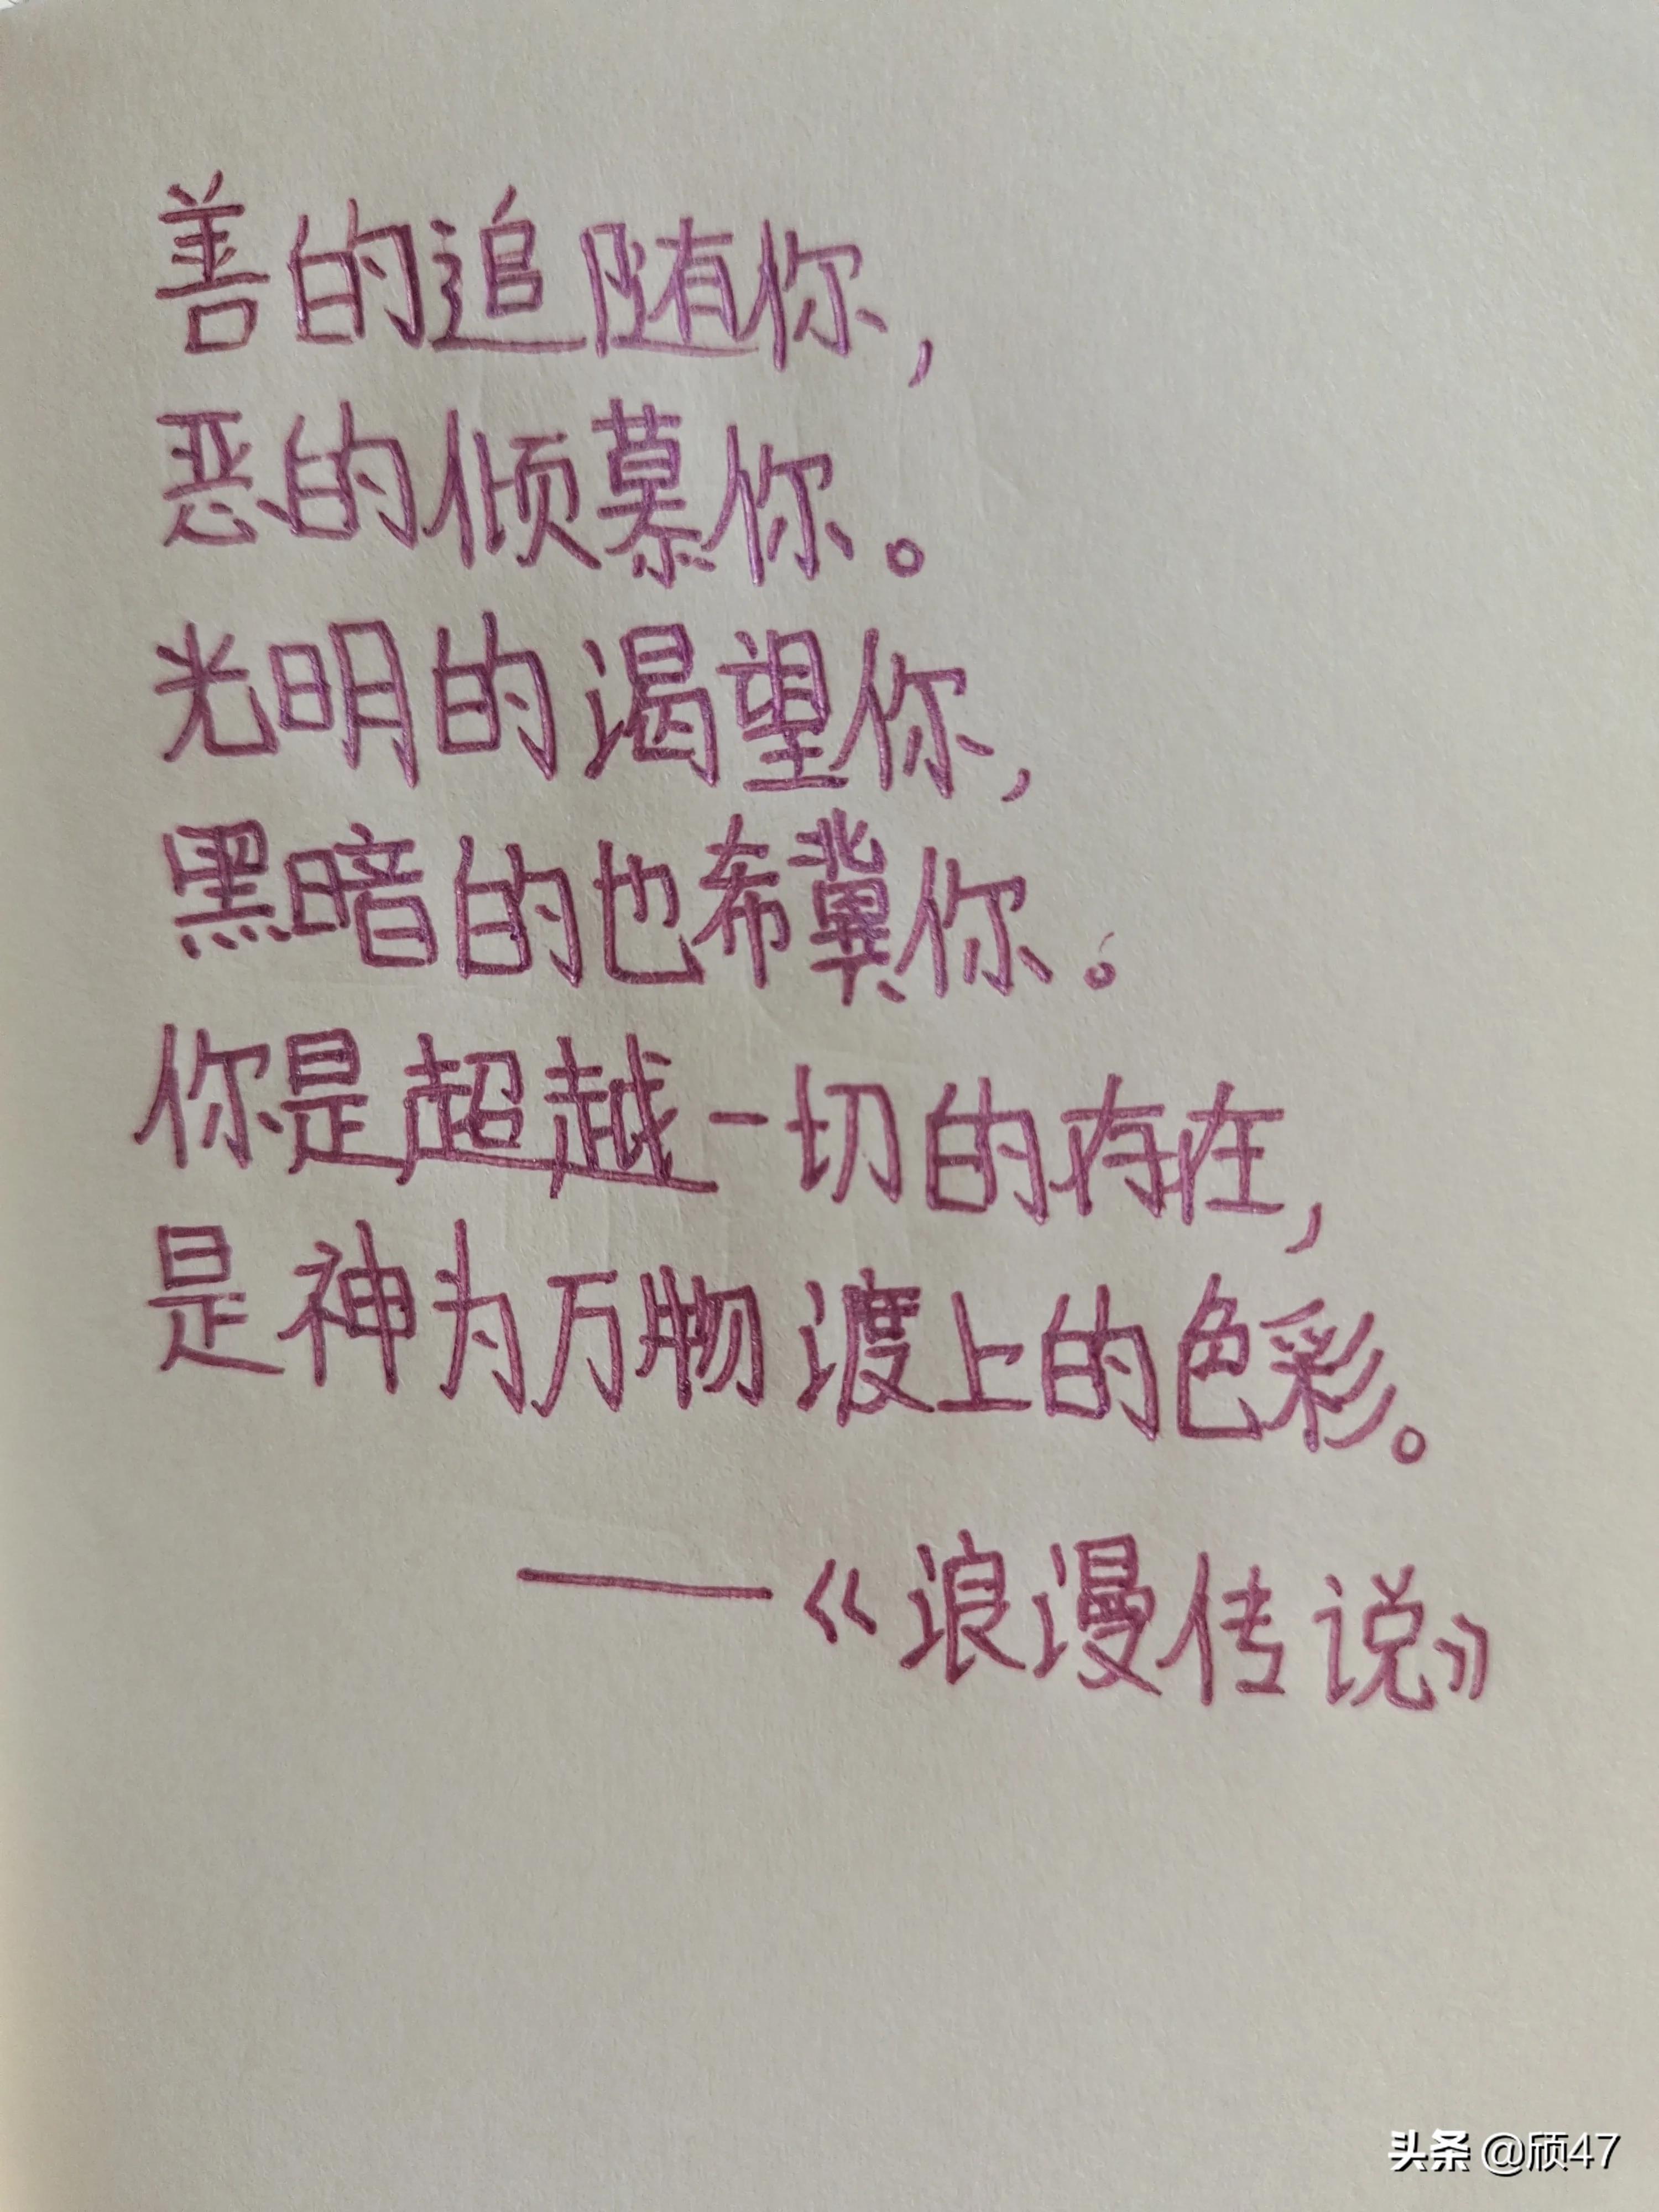 善的追随你，
恶的倾慕你。
光明的渴望你，
黑暗的也希冀你。
你是超越一切的存在，
是神为万物渡上的色彩。
——《浪漫传说》
头条 @颀47